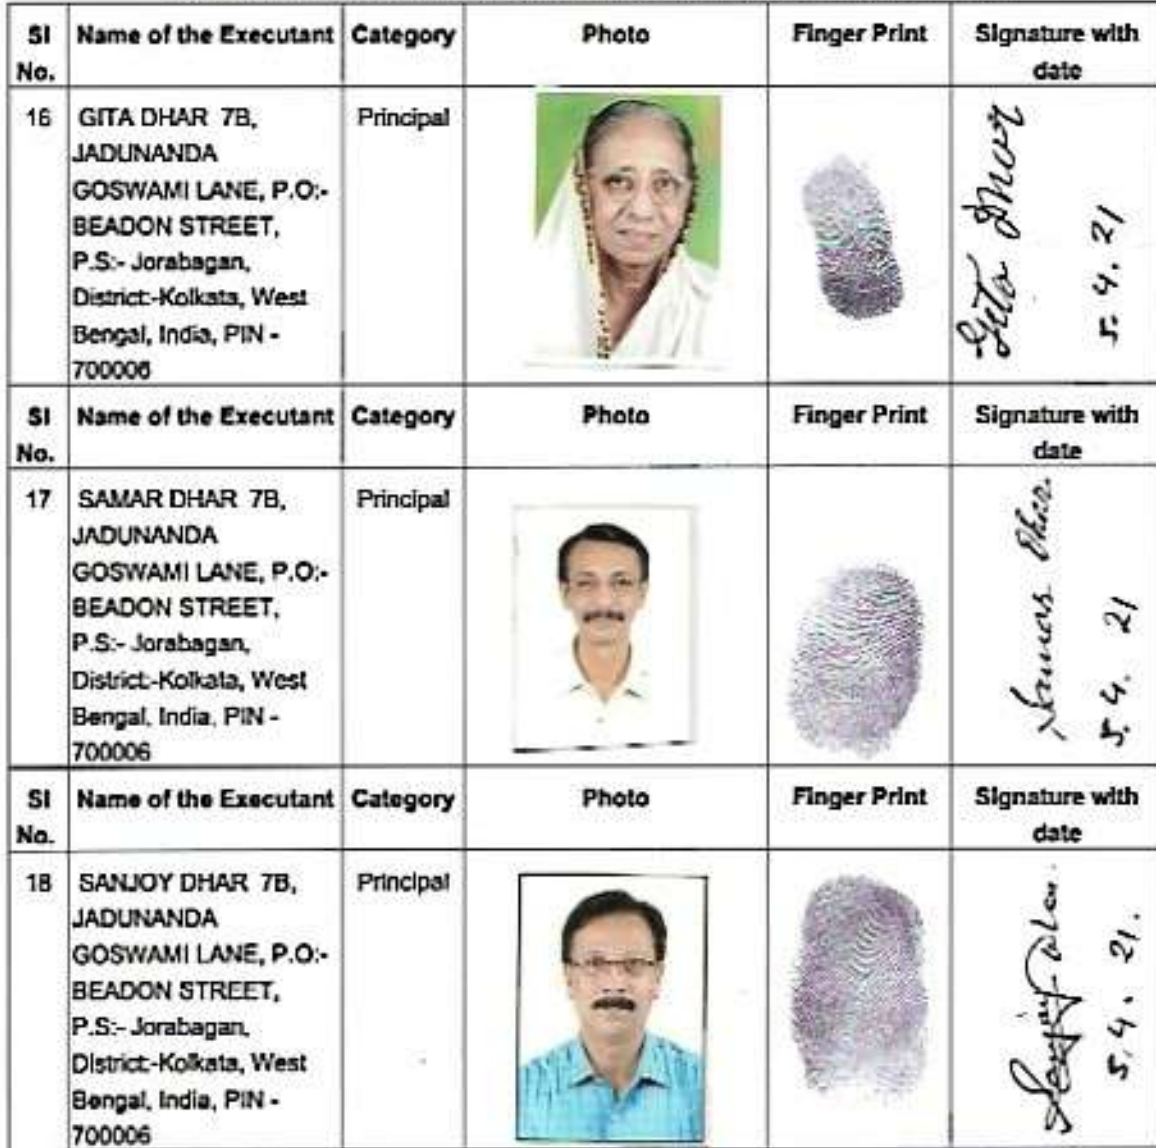 Sl No. Name of the Executant Category Photo Finger Print Signature with date
16 GITA DHAR 7B, Principal
JADUNANDA
GOSWAMI LANE, P.O:-
BEADON STREET,
P.S:- Jorabagan,
District:-Kolkata, West
Bengal, India, PIN -
700006
Gita Dhar
5.4.21
Sl No. Name of the Executant Category Photo Finger Print Signature with date
17 SAMAR DHAR 7B, Principal
JADUNANDA
GOSWAMI LANE, P.O:-
BEADON STREET,
P.S:- Jorabagan,
District:-Kolkata, West
Bengal, India, PIN -
700006
Samar Dhar.
5.4.21
Sl No. Name of the Executant Category Photo Finger Print Signature with date
18 SANJOY DHAR 7B, Principal
JADUNANDA
GOSWAMI LANE, P.O:-
BEADON STREET,
P.S:- Jorabagan,
District:-Kolkata, West
Bengal, India, PIN -
700006
Sanjoy Dhar.
5.4.21.